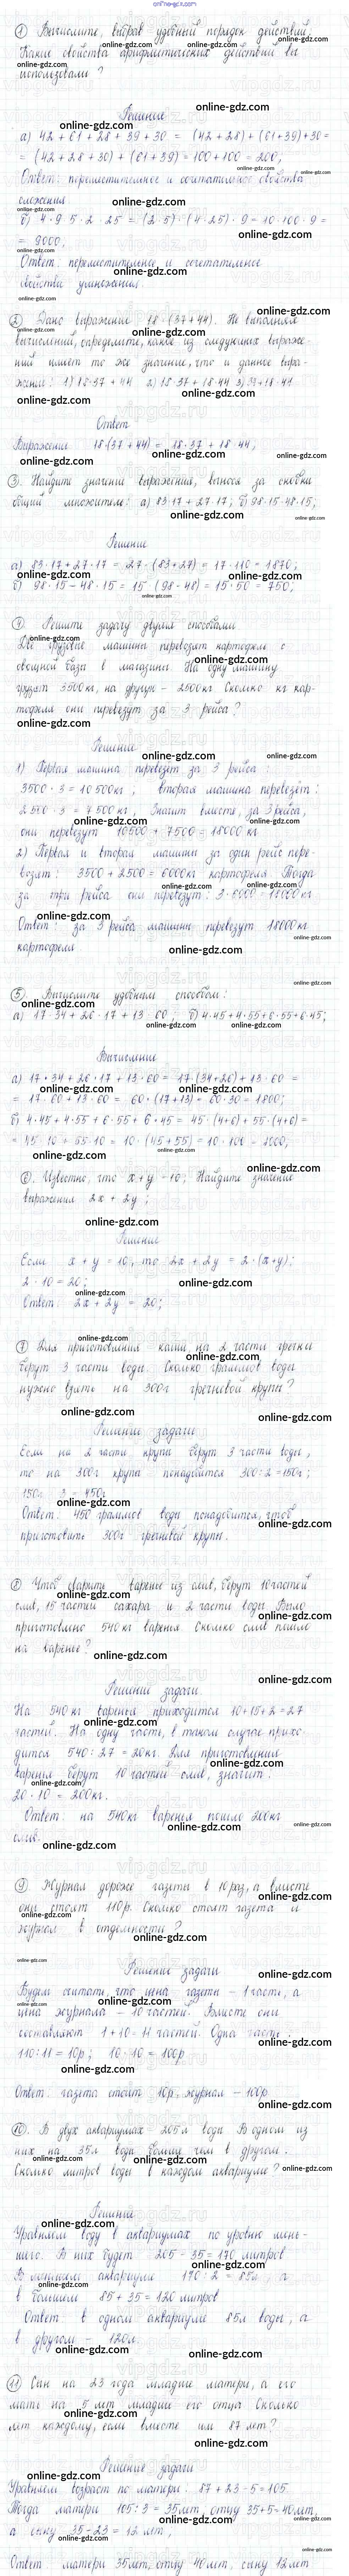 online-gdz.com
1) Вычислите, выбрав удобный порядок действий.
Какие свойства арифметических действий вы
использовали?
Решение
а) 42 + 61 + 28 + 39 + 30 = (42 + 28) + (61 + 39) + 30 =
= (42 + 28 + 30) + (61 + 39) = 100 + 100 = 200;
Ответ: переместительное и сочетательное свойства
сложения.
б) 4 · 9 · 5 · 2 · 25 = (2 · 5) · (4 · 25) · 9 = 10 · 100 · 9 =
= 9000;
Ответ: переместительное и сочетательное
свойства умножения.
2) Дано выражение 18 · (37 + 44). Не выполняя
вычислений, определите, какое из следующих выраже-
ний имеет то же значение, что и данное выра-
жение: 1) 18 · 37 + 44 2) 18 · 37 + 18 · 44 3) 37 + 18 · 44.
Ответ
Выражение 18 · (37 + 44) = 18 · 37 + 18 · 44;
3) Найдите значение выражения, вынося за скобки
общий множитель: а) 83 · 17 + 27 · 17; б) 98 · 15 - 48 · 15;
Решение
а) 83 · 17 + 27 · 17 = 27 · (83 + 27) = 17 · 110 = 1870;
б) 98 · 15 - 48 · 15 = 15 (98 - 48) = 15 · 50 = 750;
4) Решите задачу двумя способами
Две грузовые машины перевозят картофель с
овощной базы в магазины. На одну машину
грузят 3500 кг, на другую - 2500 кг. Сколько кг кар-
тофеля они перевезут за 3 рейса?
Решение
1) Первая машина перевезет за 3 рейса:
3500 · 3 = 10 500 кг; вторая машина перевезет:
2500 · 3 = 7 500 кг. Значит вместе, за 3 рейса,
они перевезут 10500 + 7500 = 18000 кг
2) Первая и вторая машины за один рейс пере-
возят: 3500 + 2500 = 6000 кг картофеля. Тогда
за три рейса они перевезут: 3 · 6000 = 18000 кг
Ответ: за 3 рейса машины перевезут 18000 кг
картофеля.
5) Вычислите удобным способом:
а) 17 · 34 + 26 · 17 + 13 · 60; б) 4 · 45 + 4 · 55 + 6 · 55 + 6 · 45;
Вычисление
а) 17 · 34 + 26 · 17 + 13 · 60 = 17 · (34 + 26) + 13 · 60 =
= 17 · 60 + 13 · 60 = 60 · (17 + 13) = 60 · 30 = 1800;
б) 4 · 45 + 4 · 55 + 6 · 55 + 6 · 45 = 45 · (4 + 6) + 55 · (4 + 6) =
= 45 · 10 + 55 · 10 = 10 · (45 + 55) = 10 · 100 = 1000;
6. Известно, что x + y = 10; Найдите значение
выражения 2x + 2y;
Решение
Если x + y = 10, то 2x + 2y = 2 · (x + y);
2 · 10 = 20;
Ответ: 2x + 2y = 20;
7) Для приготовления каши на 2 части гречки
берут 3 части воды. Сколько граммов воды
нужно взять на 300 г гречневой крупы?
Решение задачи
Если на 2 части крупы берут 3 части воды,
то на 300 г крупы понадобится 300 : 2 = 150 г;
150 · 3 = 450 г
Ответ: 450 граммов воды понадобится, чтоб
приготовить 300 г гречневой крупы.
8) Чтоб сварить варенье из слив, берут 10 частей
слив, 15 частей сахара и 2 части воды. Было
приготовлено 540 кг варенья. Сколько слив пошло
на варенье?
Решение задачи.
На 540 кг варенья приходится 10 + 15 + 2 = 27
частей. На одну часть, в таком случае прихо-
дится 540 : 27 = 20 кг. Для приготовления
варенья берут 10 частей слив, значит:
20 · 10 = 200 кг.
Ответ: на 540 кг варенья пошло 200 кг
слив.
9) Журнал дороже газеты в 10 раз, а вместе
они стоят 110 р. Сколько стоят газета и
журнал в отдельности?
Решение задачи
Будем считать, что цена газеты - 1 часть, а
цена журнала - 10 частей. Вместе они
составляют 1 + 10 = 11 частей. Одна часть:
110 : 11 = 10 р; 10 · 10 = 100 р
Ответ: газета стоит 10 р, журнал - 100 р.
10. В двух аквариумах 205 л воды. В одном из
них на 35 л воды больше чем в другом.
Сколько литров воды в каждом аквариуме?
Решение
Уравняем воду в аквариумах по уровню мень-
шего. В них будет 205 - 35 = 170 литров
В меньшем аквариуме 170 : 2 = 85 л, а
в большем 85 + 35 = 120 литров
Ответ: в одном аквариуме 85 л воды, а
в другом - 120 л.
11) Сын на 23 года младше матери, а его
мать на 5 лет младше его отца. Сколько
лет каждому, если вместе им 87 лет?
Решение задачи
Уравняем возраст по матери: 87 + 23 - 5 = 105.
Тогда матери 105 : 3 = 35 лет, отцу 35 + 5 = 40 лет,
а сыну 35 - 23 = 12 лет;
Ответ: матери 35 лет, отцу 40 лет, сыну 12 лет